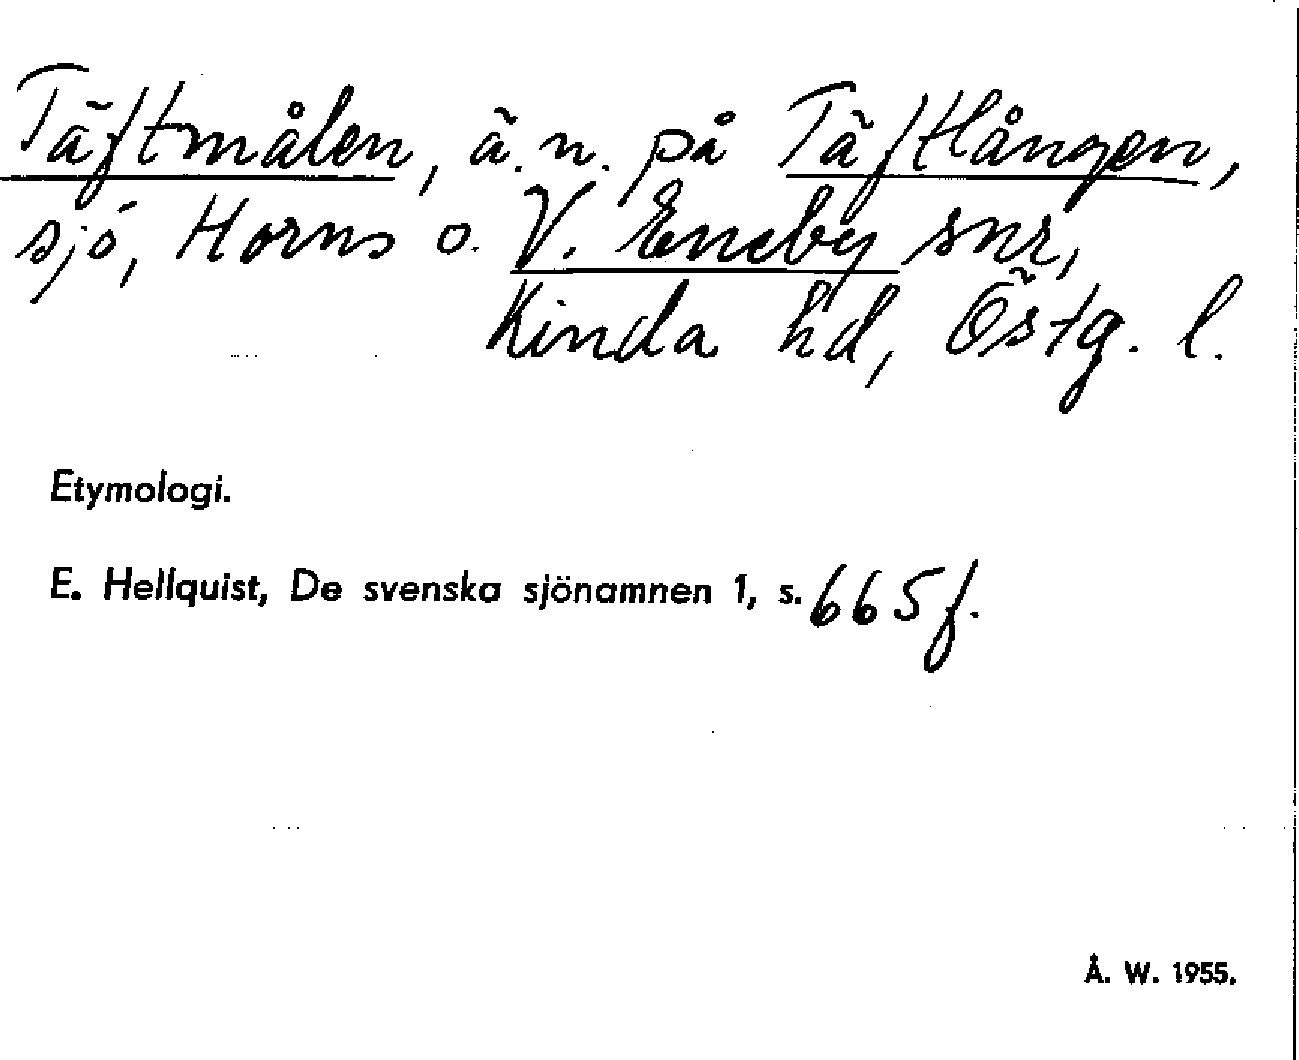 Täftmålen, ä. n. på Täftlången,
sjö, Horns o. V. Eneby snr,
Kinda hd, Östg. l.
Etymologi.
E. Hellquist, De svenska sjönamnen 1, s. 665 f.
Å. W. 1955.